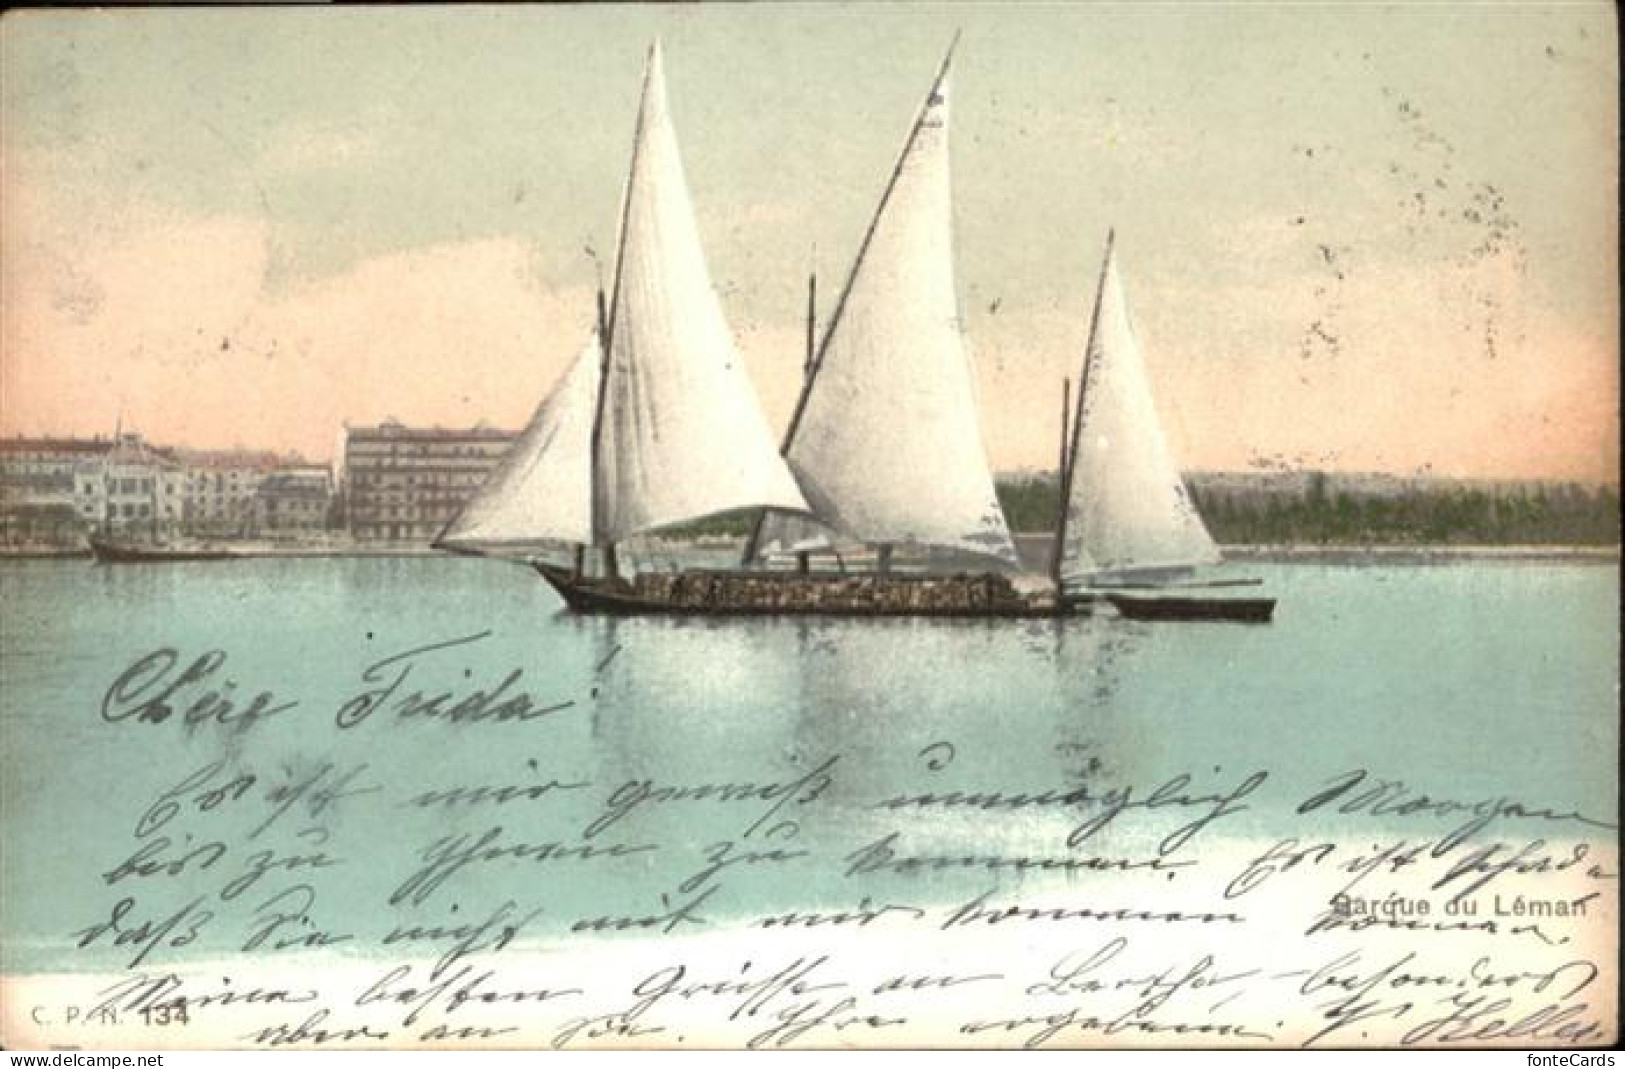 Chère Frida!
Es ist mir gewiß unmöglich Morgen
bis zu Ihnen zu kommen. Es ist schade
daß Sie nicht mit mir kommen können.
Barque du Léman
Meine besten Grüsse an Bertha, besonders
aber an Sie. Ihre ergebene F. Keller.
C. P. N. 134
www.delcampe.net
fonteCards